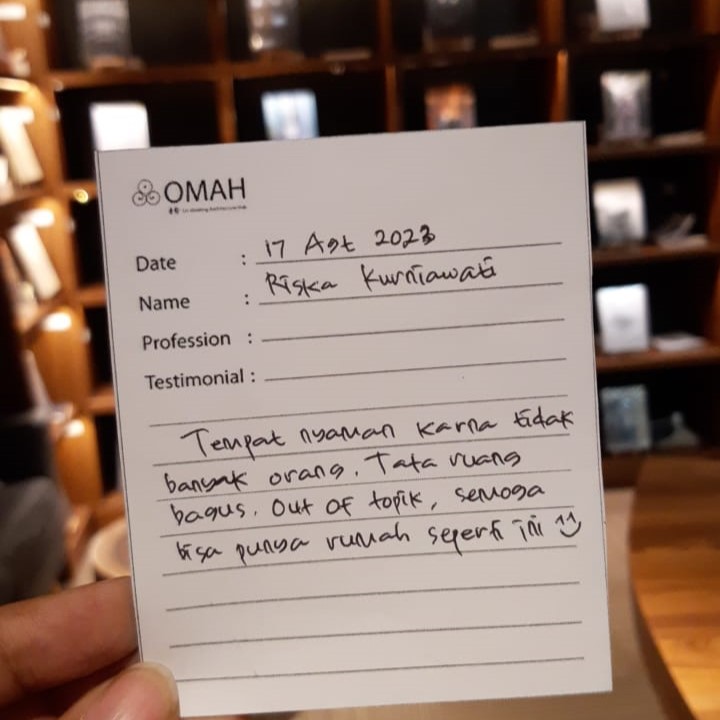 OMAH
Date : 17 Agt 2023
Name : Riska Kurniawati
Profession :
Testimonial :
Tempat nyaman karna tidak
banyak orang. Tata ruang
bagus. Out of topik, semoga
bisa punya rumah seperti ini